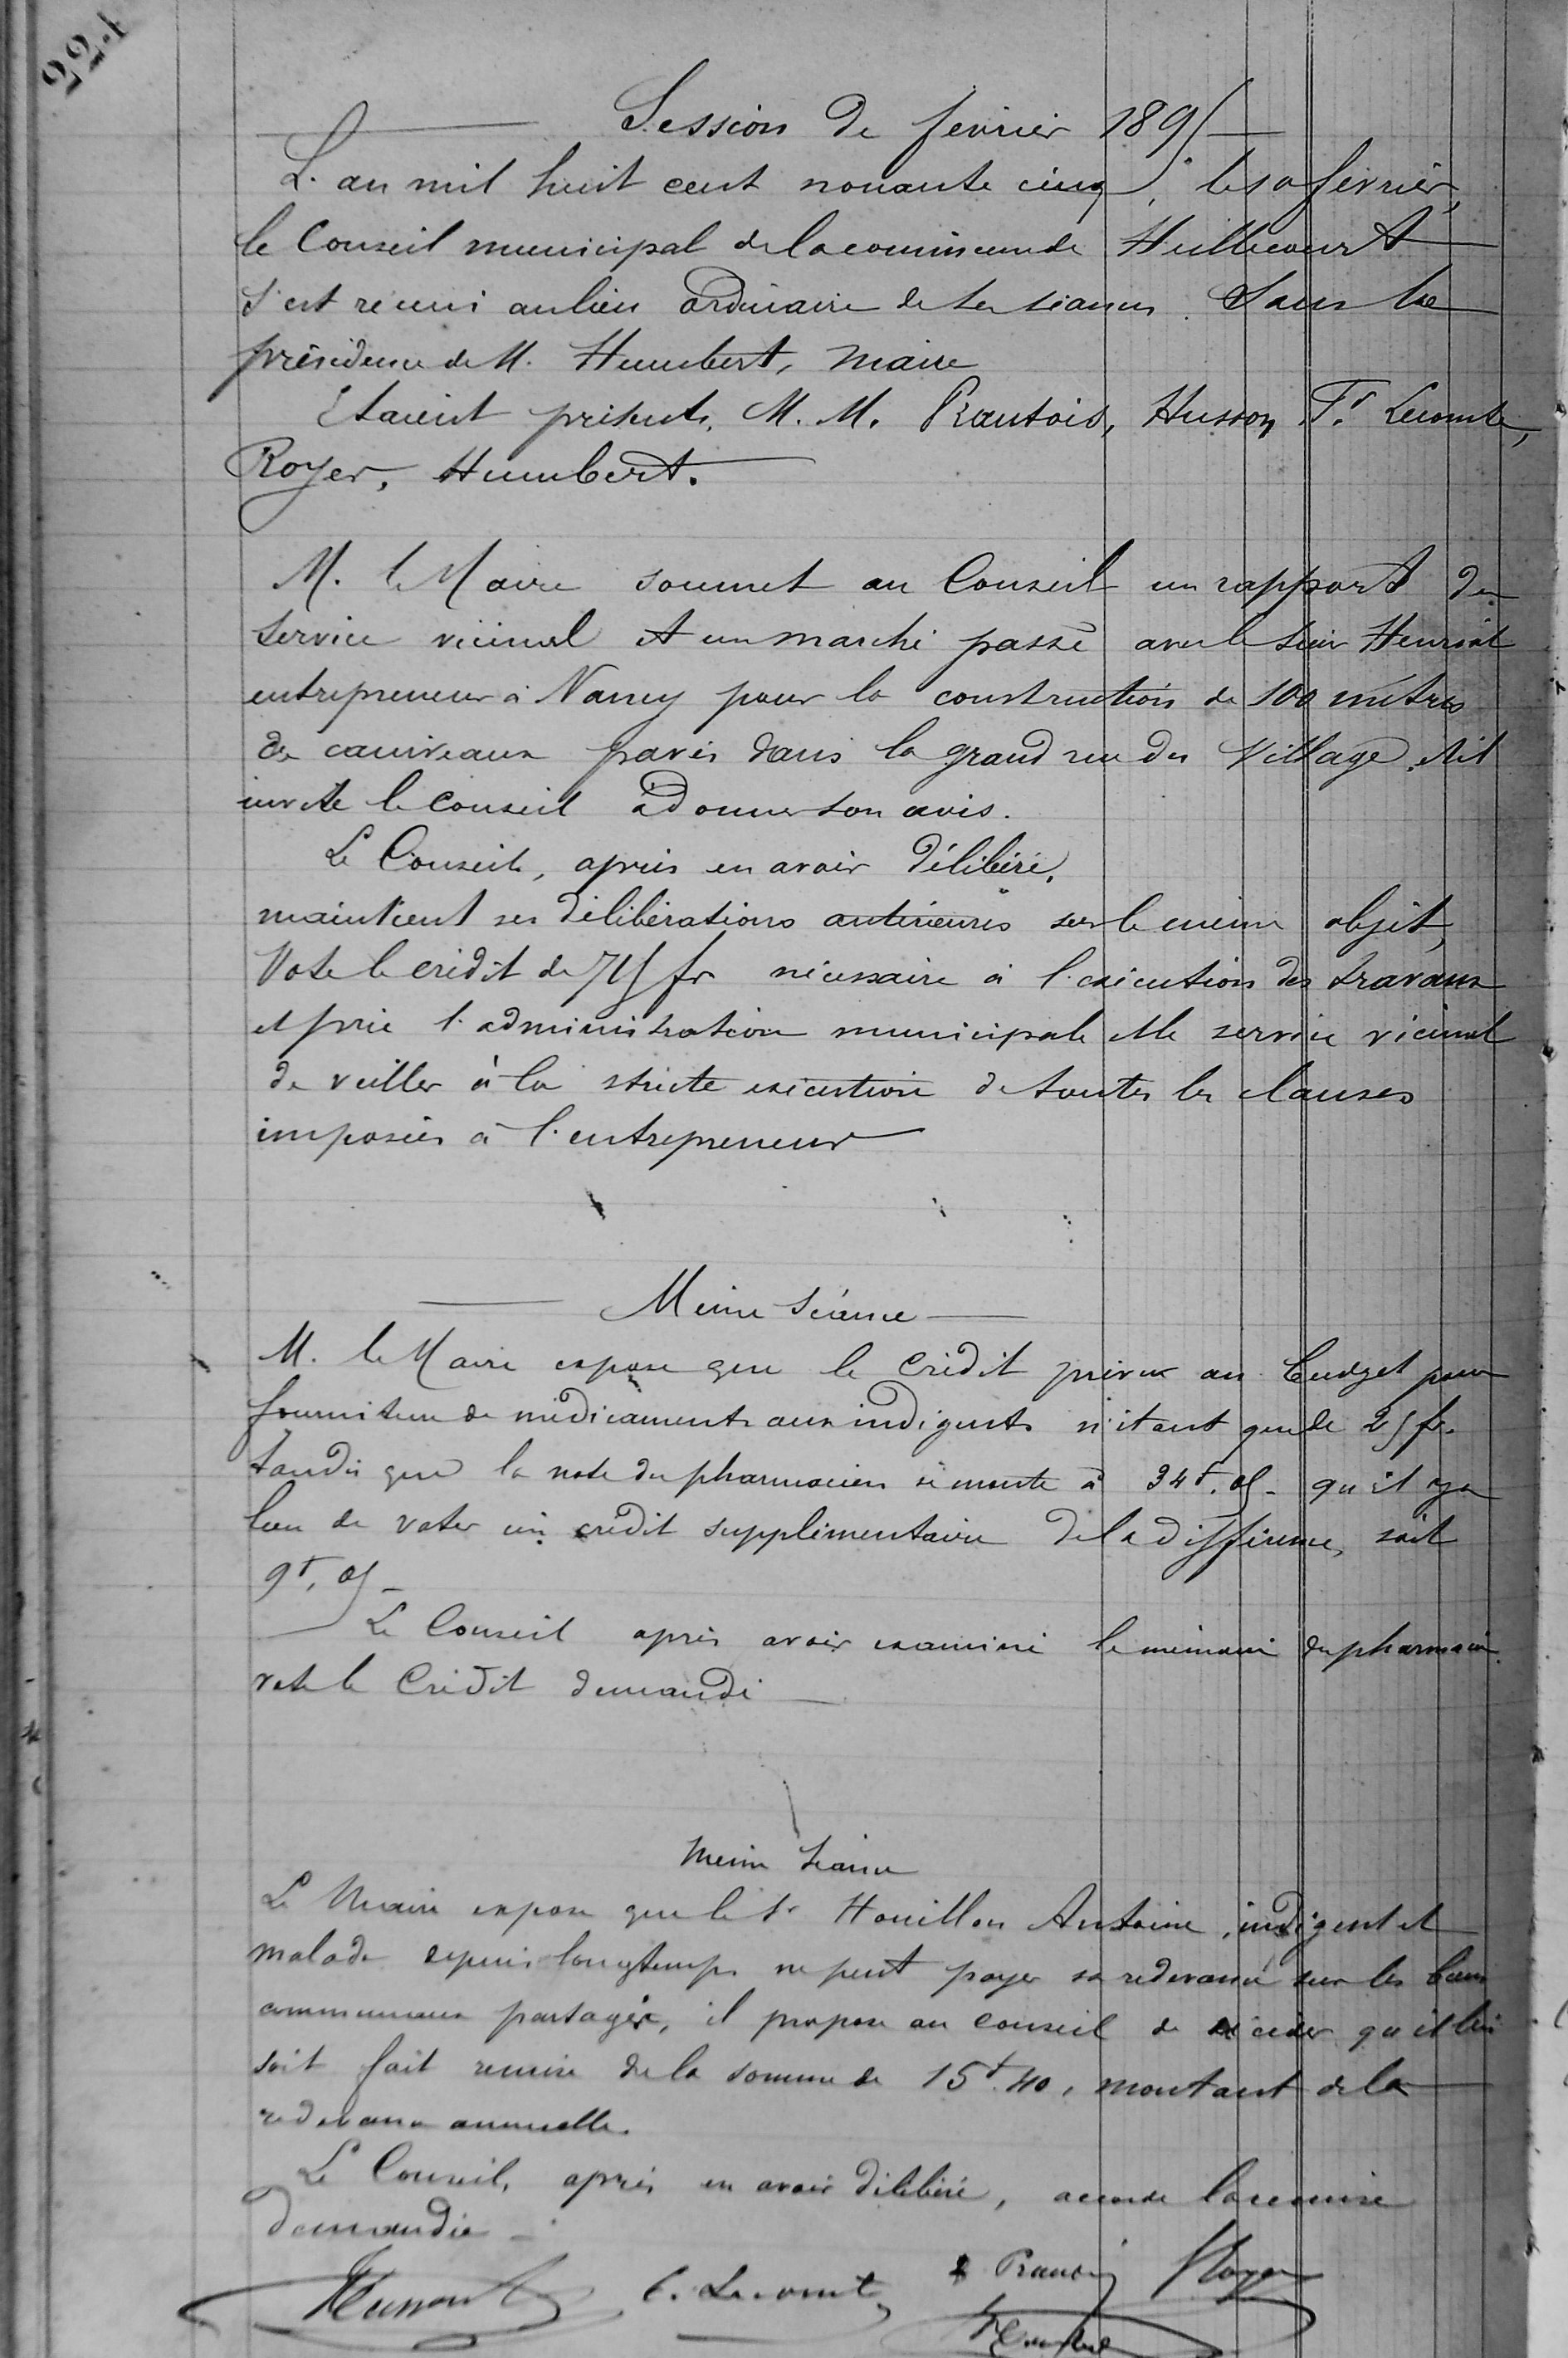 224
Session de février 1895
L'an mil huit cent nonante cinq, le 10 février,
le Conseil municipal de la commune de Huillecourt
s'est réuni au lieu ordinaire de ses séances. Sous la
présidence de M. Humbert, maire
Etaient présents, M. M. Prautois, Husson, Fs Lecomte,
Royer, Humbert.
M. le Maire soumet au Conseil un rapport du
service vicinal et un marché passé avec le sieur Henriot
entrepreneur à Nancy pour la construction de 100 mètres
de caniveaux pavés dans la grand rue du Village, et il
invite le conseil à donner son avis.
Le Conseil, après en avoir délibéré,
maintient ses délibérations antérieures sur le même objet,
Vote le crédit de 715 fr nécessaire à l'exécution des travaux
et prie l'administration municipale et le service vicinal
de veiller à la stricte exécution de toutes les clauses
imposées à l'entrepreneur
Même séance
M. le Maire expose que le crédit prévu au budget pour
fourniture de médicaments aux indigents n'étant que de 25 fr.
tandis que la note du pharmacien se monte à 34f,05 - qu'il y a
lieu de voter un crédit supplémentaire de la différence, soit
9f,05 -
Le Conseil après avoir examiné le mémoire du pharmacien
vote le crédit demandé
Même séance
Le Maire expose que le sr Houillon Antoine, indigent et
malade depuis longtemps ne peut payer sa redevance sur les biens
communaux partagés, il propose au conseil de décider qu'il lui
soit fait remise de la somme de 15f.40, montant de la
redevance annuelle.
Le Conseil, après en avoir délibéré, accorde la remise
demandée -
Husson C. Lecomte Royer
Humbert